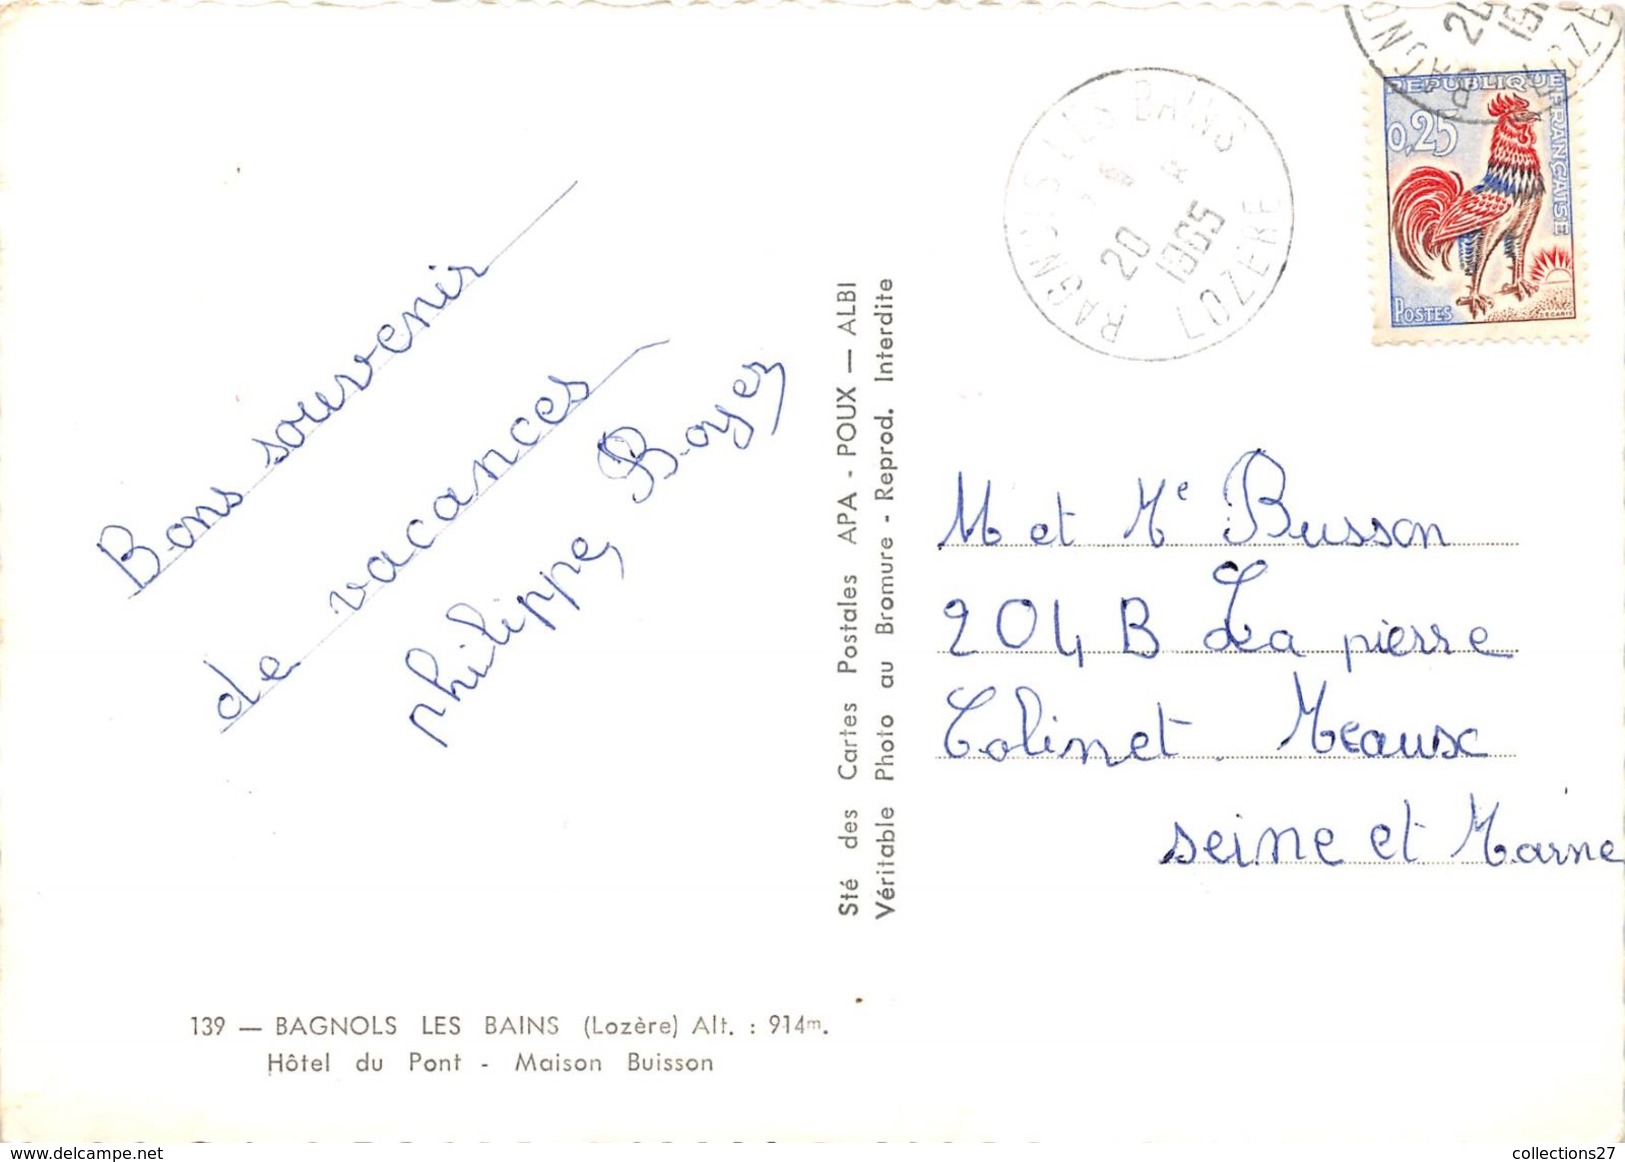 Bons souvenir
de vacances
philippe Boyer
139 — BAGNOLS LES BAINS (Lozère) Alt. : 914m.
Hôtel du Pont - Maison Buisson
Sté des Cartes Postales APA - POUX — ALBI
Véritable Photo au Bromure - Reprod. Interdite
BAGNOLS LES BAINS
20
1965
LOZERE
REPUBLIQUE FRANÇAISE
0,25
POSTES
DECARIS
M et Me Busson
204 B La pierre
Colinet. Meaux
seine et Marne
https://www.delcampe.net
collections27